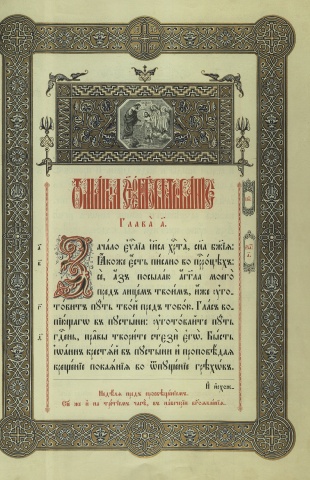 Ѿ ма́рка ст҃о́е благовѣствова́нїе
Глава̀ а҃.
Зача́ло є҆ѵⷢ҇лїа і҆и҃са хрⷭ҇та̀, сн҃а бж҃їѧ:
Ꙗ҆́коже є҆́сть пи́сано во прⷪ҇ро́цѣхъ:
сѐ, а҆́зъ посыла́ю а҆́гг҃ла моего̀
пред̾ лице́мъ твои́мъ, и҆́же ᲂу҆гото́
витъ пꙋ́ть тво́й пред̾ тобо́ю. Гла́съ
вопїю́щагѡ въ пꙋсты́ни: ᲂу҆гото́вайте пꙋ́ть
гдⷭ҇ень, пра̑вы твори́те стєзѝ є҆гѡ̀. Бы́сть
і҆ѡа́ннъ крⷭ҇тѧ́й въ пꙋсты́ни и҆ проповѣ́даѧ
креще́нїе покаѧ́нїѧ во ѡ҆пꙋще́нїе грѣхѡ́въ.
Недѣ́лѧ пред̾ просвѣще́нїемъ.